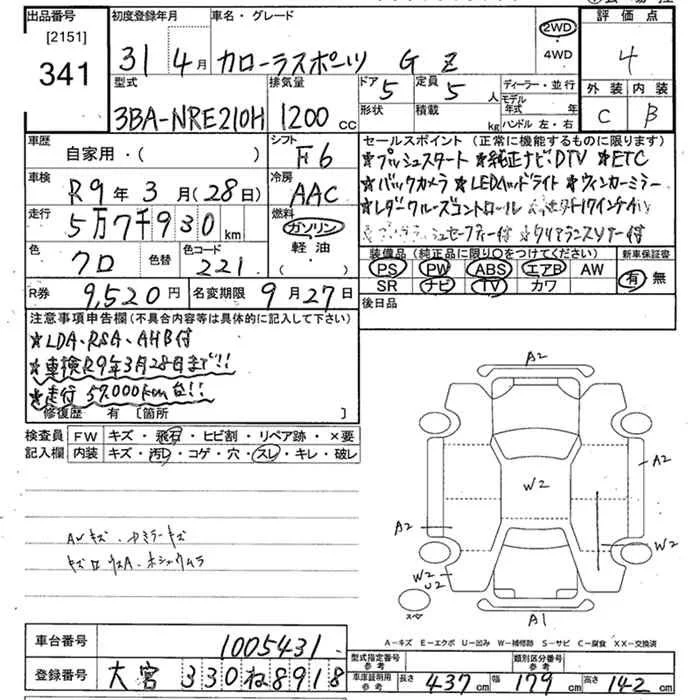 出品番号 初度登録年月 車名・グレード 2WD・4WD 評価点
[2151]
341 31 4月 カローラスポーツ G Z 4
型式 排気量 ドア 5 定員 5人 ディーラー・並行 外装 内装
3BA-NRE210H 1200cc 形状 積載 kg モデル年式 年 ハンドル 左・右 C B
車歴 自家用・( ) シフト F6
セールスポイント(正常に機能するものに限ります)
★プッシュスタート ★純正ナビDTV ★ETC
車検 R9年3月(28日) 冷房 AAC
★バックカメラ ★LEDヘッドライト ★ウィンカーミラー
走行 5万7千930km 燃料 ガソリン
★レダークルーズコントロール
軽油・( )
色 クロ 色替 色コード 221
装備品(純正品に限り○をつけてください) 新車保証書
PS PW ABS エアB AW 有 無
SR ナビ TV カワ
R券 9,520円 名変期限 9月27日 後日品
注意事項申告欄(不具合内容等は具体的に記入して下さい)
★LDA、RSA、AHB付
★車検R9年3月28日まで!!
★走行57,000km台!!
修復歴 有 [箇所 ]
検査員記入欄 FW キズ・飛石・ヒビ割・リペア跡・×要
内装 キズ・汚レ・コゲ・穴・スレ・キレ・破レ
A2
A2
W2
A2
W2
W2
U2
A1
AWキズ
A-キズ E-エクボ U-凹み W-補修跡 S-サビ C-腐食 XX-交換済
車台番号 1005431
型式指定番号 類別区分番号
登録番号 大宮 330 ね 8918
車庫証明用参考 長さ 437cm 幅 179cm 高さ 142cm